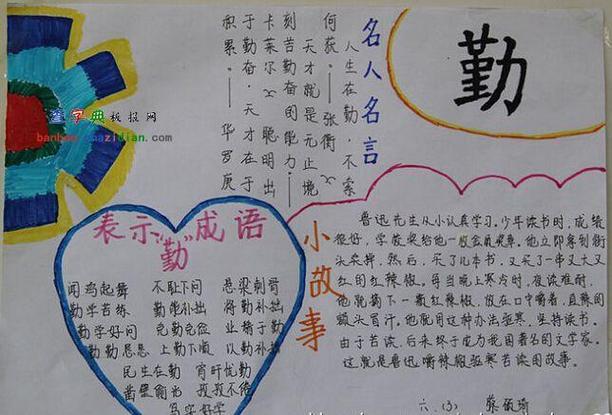 勤
名人名言
人生在勤，不索
何获。——张衡《》
天才就是无止境
刻苦勤奋的能力.——
卡莱尔《》聪明出
于勤奋，天才在于
积累.——华罗庚
查字典板报网
表示"勤"成语
闻鸡起舞 不耻下问 悬梁刺骨
勤学苦练 勤能补拙 将勤补拙
勤学好问 克勤克俭 业精于勤
勤勤恳恳 上勤下顺 以勤补拙
民生在勤 宵旰忧勤
凿壁偷光 孜孜不倦
好学
小故事
鲁迅先生从小认真学习。少年读书时，成绩
很好，学校奖给他一枚金质奖章，他立即拿到街
头卖掉，然后，买了几本书，又买了一串又大又
红的红辣椒。每当晚上寒冷时，夜读难耐，
他就摘下一颗红辣椒，放在口中嚼着，直辣的
额头冒汗。他就用这种办法驱寒，坚持读书。
由于苦读，后来终于成为我国著名的文学家。
这就是鲁迅嚼辣椒驱寒苦读的故事。
六.(3) 蔡